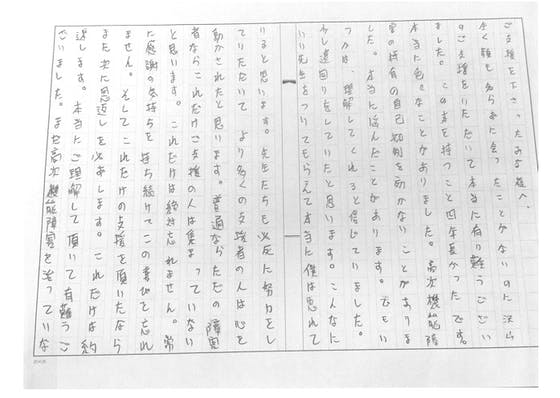 ご支援を下さったみな様へ、
全く顔も名前も会ったことがないのに沢山
のご支援をいただいて本当に有り難うござい
ました。この本を持つこと四年長かったです。
本当に色々なことがありました。高次機能障
害の特有の自己抑制を効かないことがありま
した。本当に悩んだことがあります。でもい
つかは、理解してくれると信じていました。
少し遠回りをしていたと思います。こんなに
いい先生をついてもらえて本当に僕は恵れて
いると思います。先生たちも必死に努力をし
ていただいて、より多くの支援者の人は心を
動かされたと思います。普通ならただの障害
者ならこれだけご支援の人は集まっていない
と思います。これだけは絶対忘れません。常
に感謝の気持ちを持ち続けてこの書道を忘れ
ません。そしてこれだけの支援を頂いたなら
また次に恩返しを必ずします。これだけは約
返します。本当にご理解して頂いて有難うご
ざいました。まだ高次機能障害を治っていな